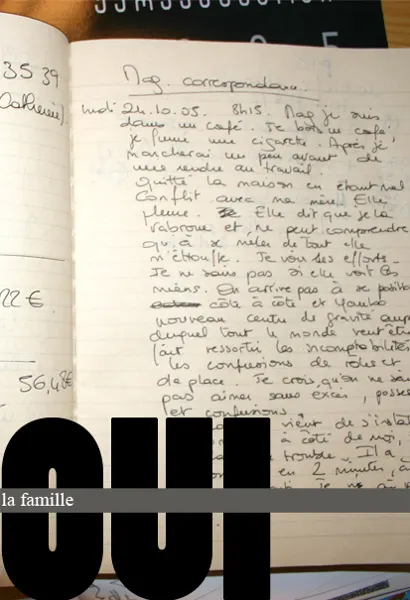 35 39
Mag. correspondance.
lundi 24.10.05. 8h15. Mag je suis
dans un café. Je bois un café,
je fume une cigarette. Après je
marcherai un peu avant de
me rendre au travail.
Quitté la maison en étant mal
Conflit avec ma mère. Elle
pleure. Elle dit que je la
rabroue et ne peut comprendre
qu'à se mêler de tout elle
m'étouffe. Je vois ses efforts.
Je ne sais pas si elle voit les
miens. On arrive pas à se positio
côte à côte et
22 €
nouveau centre de gravité aup
duquel tout le monde veut être
fait ressortir les incompatibilités
les confusions de rôles et
de place. Je crois qu'on ne sai
56,42€
pas aimer sans excès, posses
et confusions.
vient de s'instal
à côté de moi,
trouble. Il a
en 2 minutes, a
OUI
la famille